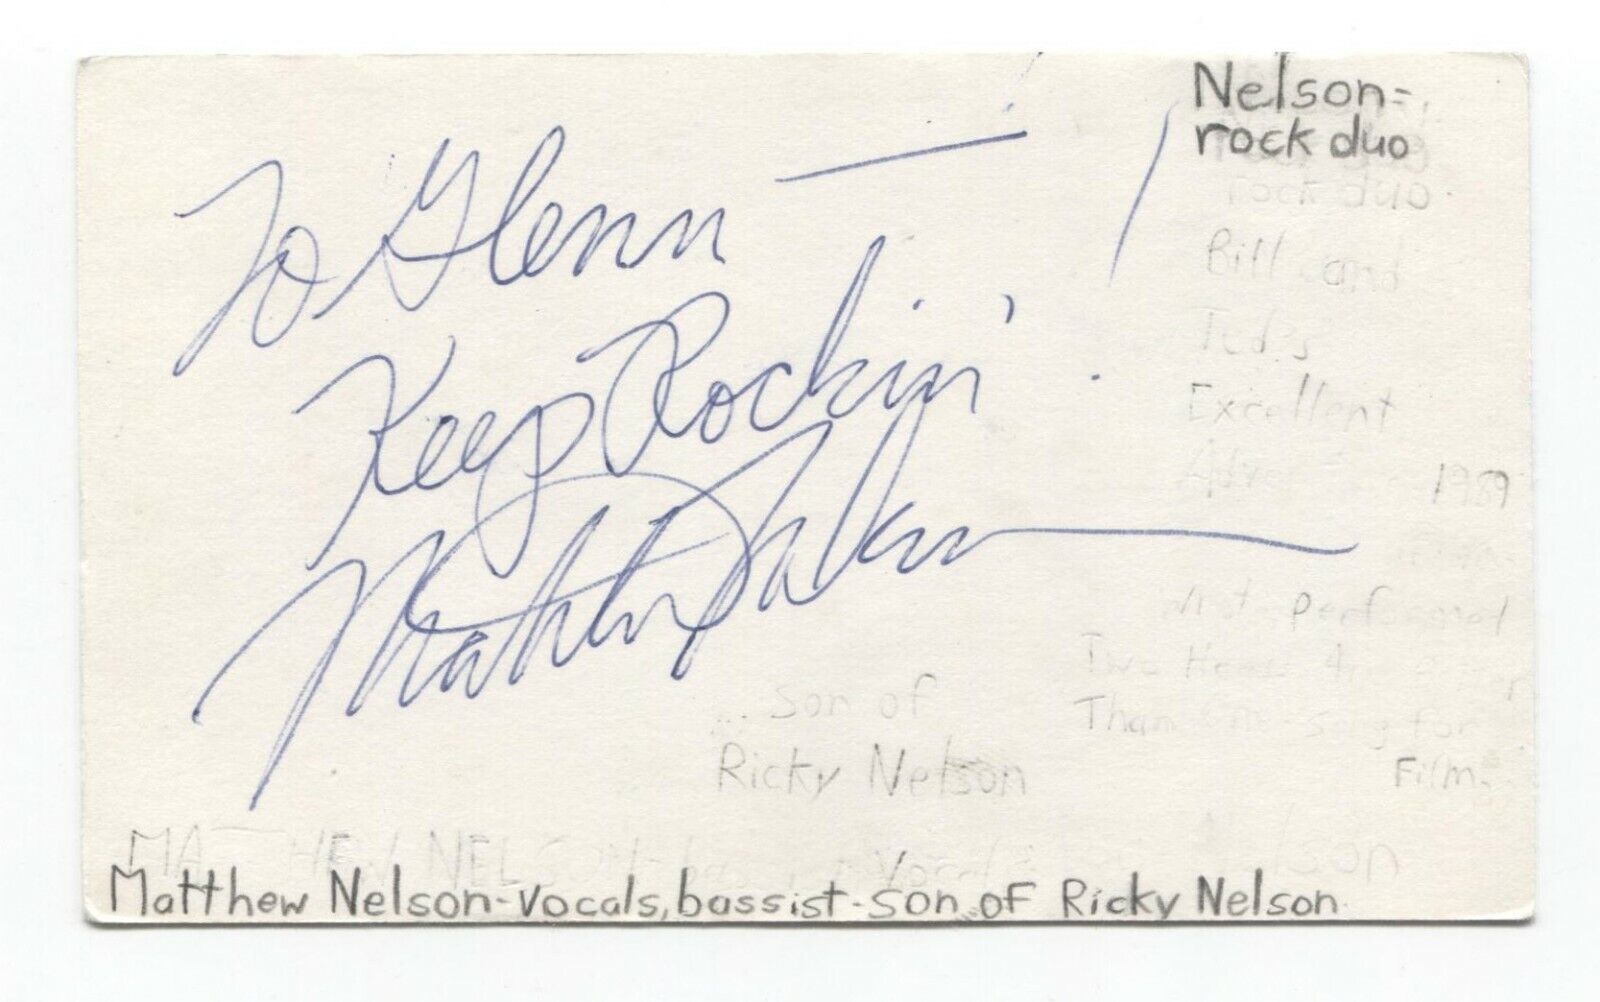 Nelson-
rock duo
To Glenn —
Keep Rockin' !
Matthew Nelson
rock duo
Bill and
Ted's
Excellent
1989
performed
Two
Than song for
Film.
son of
Ricky Nelson
MATTHEW NELSON
Matthew Nelson-vocals, bassist-son of Ricky Nelson